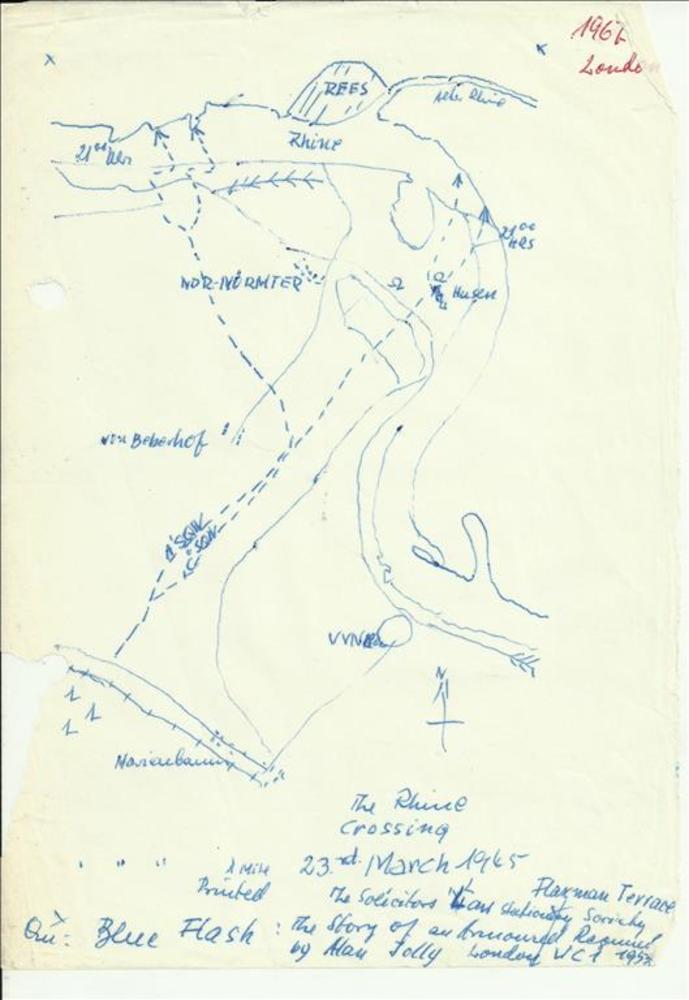 196
London
REES
Alter Rhine
Rhine
21⁰⁰ Uhr
21⁰⁰
HRS
NDR-MÖRMTER
Husen
von Beberhof
"A" SQN
"C" SQN
VYNEN
N
Marienbaum
The Rhine
Crossing
1 Mile
23rd March 1945
Printed
The Solicitors Law Stationery Society
Flaxman Terrace
Blue Flash : The Story of an Armoured Regiment
by Alan Jolly London WC1 1952